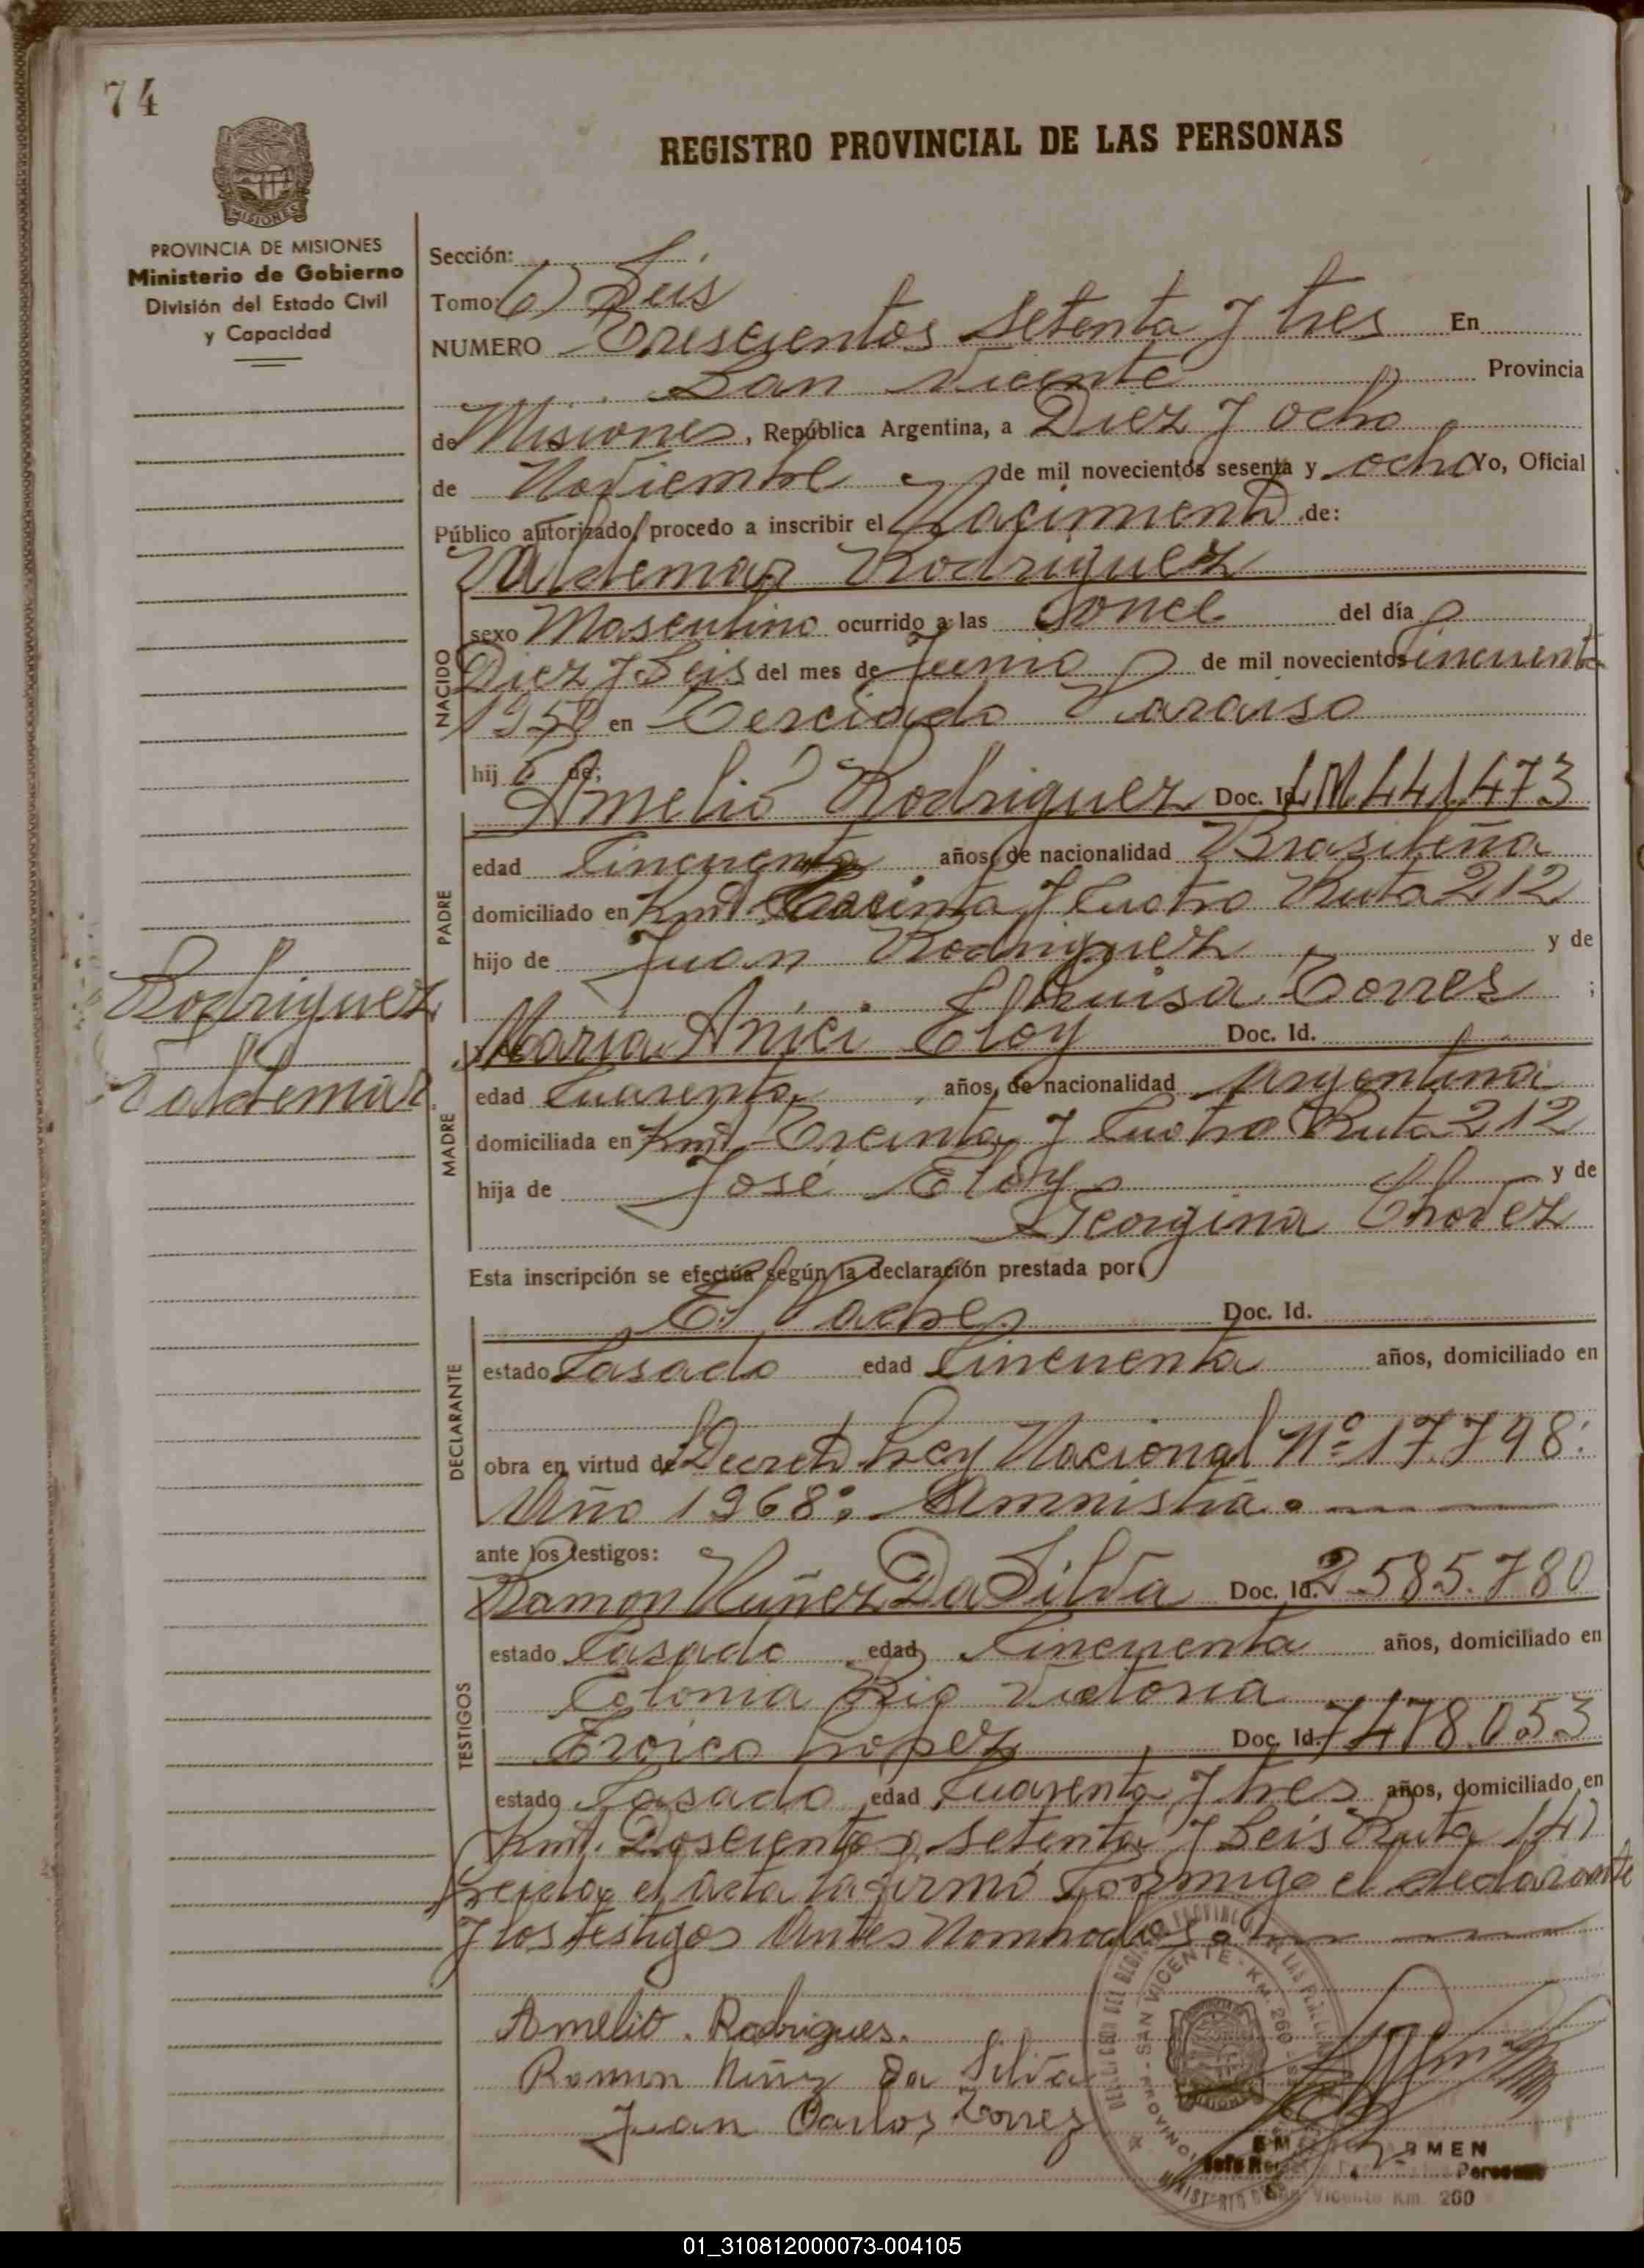 74
REGISTRO PROVINCIAL DE LAS PERSONAS
MISIONES
PROVINCIA DE MISIONES
Ministerio de Gobierno
División del Estado Civil
y Capacidad
Sección:
Tomo: 6) Seis
NUMERO Trescientos Setenta y tres En
San Vicente Provincia
de Misiones, República Argentina, a Diez y ocho
de Noviembre de mil novecientos sesenta y ocho Yo, Oficial
Público autorizado, procedo a inscribir el Nacimiento de:
Valdemar Rodriguez
NACIDO
sexo Masculino ocurrido a las Once del día
Diez y Seis del mes de Junio de mil novecientos Cincuenta
en Terciado Paraiso
hijo de:
PADRE
Amelio Rodriguez Doc. Id. 441.473
edad Cincuenta años, de nacionalidad Brasileña
domiciliado en Km. Treinta y Cuatro Ruta 212
hijo de Juan Rodriguez y de
Torres ;
Rodriguez
Valdemar
MADRE
Maria Eloy Doc. Id.
edad Cuarenta años, de nacionalidad Argentina
domiciliada en Km. Treinta y Cuatro Ruta 212
hija de José Eloy y de
Georgina Chavez
Esta inscripción se efectúa según la declaración prestada por
DECLARANTE
El Padre Doc. Id.
estado Casado edad Cincuenta años, domiciliado en
obra en virtud de Decreto Ley Nacional Nº 17.798:
Año 1968: Amnistia.
ante los testigos:
TESTIGOS
Ramon Nuñez Da Silva Doc. Id. 2.585.780
estado Casado edad Cincuenta años, domiciliado en
Colonia Rio Victoria
Lopez Doc. Id. 7478.053
estado Casado edad Cuarenta y tres años, domiciliado en
Km. Doscientos Setenta y Seis Ruta 14)
Leida el acta la firmó Conmigo el declarante
y los testigos Antes Nombrados.
Amelio. Rodrigues.
Ramon Nuñez Da Silva
Juan Carlos Torres
SAN VICENTE - KM. 260
San Vicente Km. 260
01_310812000073-004105